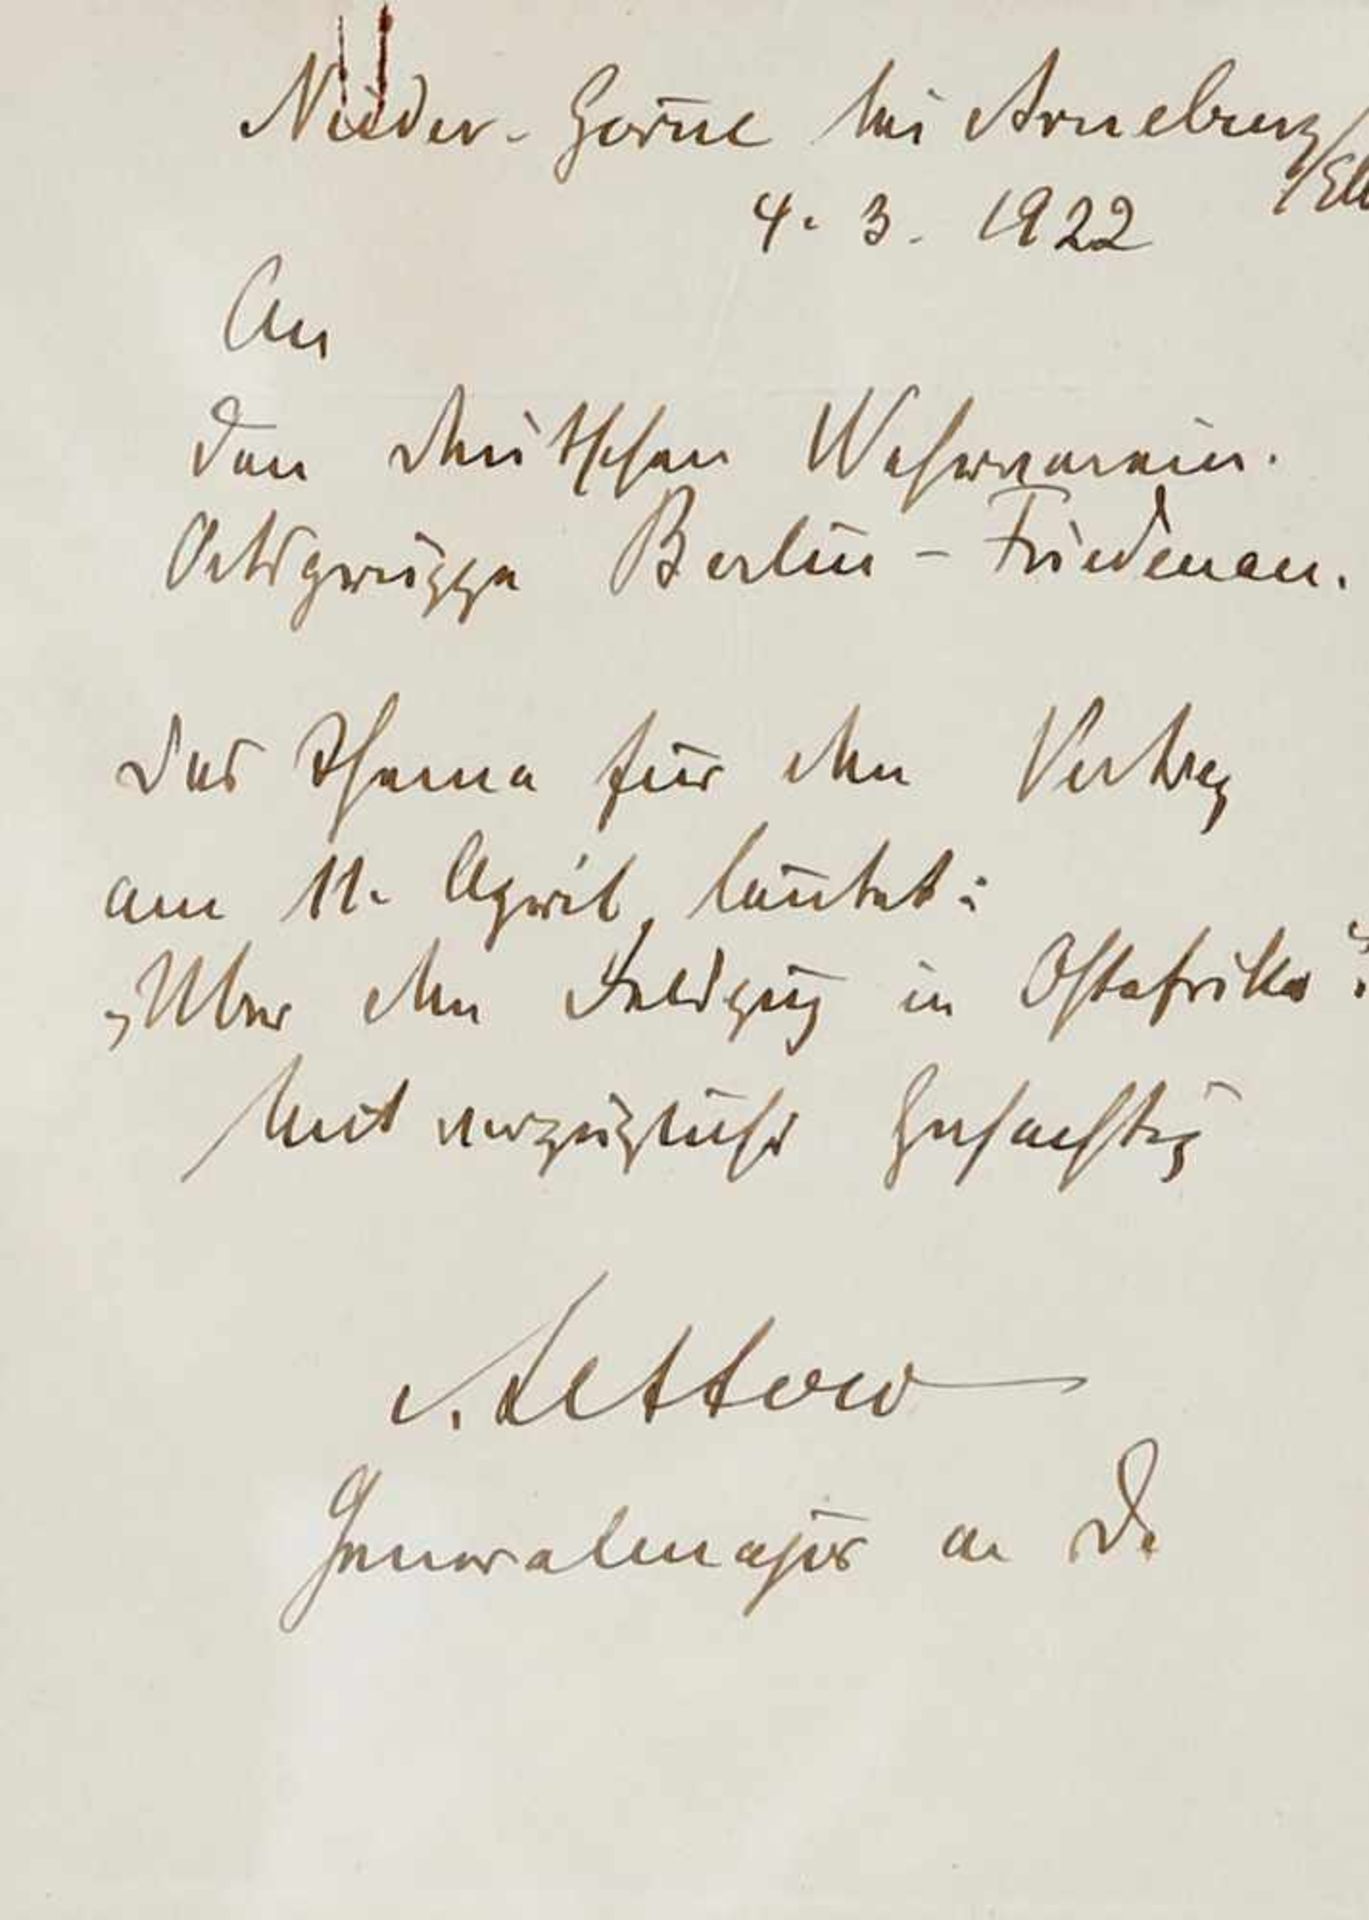 Nieder-Görne bei Arneburg
/Elb
4. 3. 1922
An
den deutschen Wehrverein.
Ortsgruppe Berlin - Friedenau.
Das Thema für den Vortrag
am 11. April, lautet:
„Über den Feldzug in Ostafrika“.
Mit vorzüglicher Hochachtung
v. Lettow
Generalmajor a D.